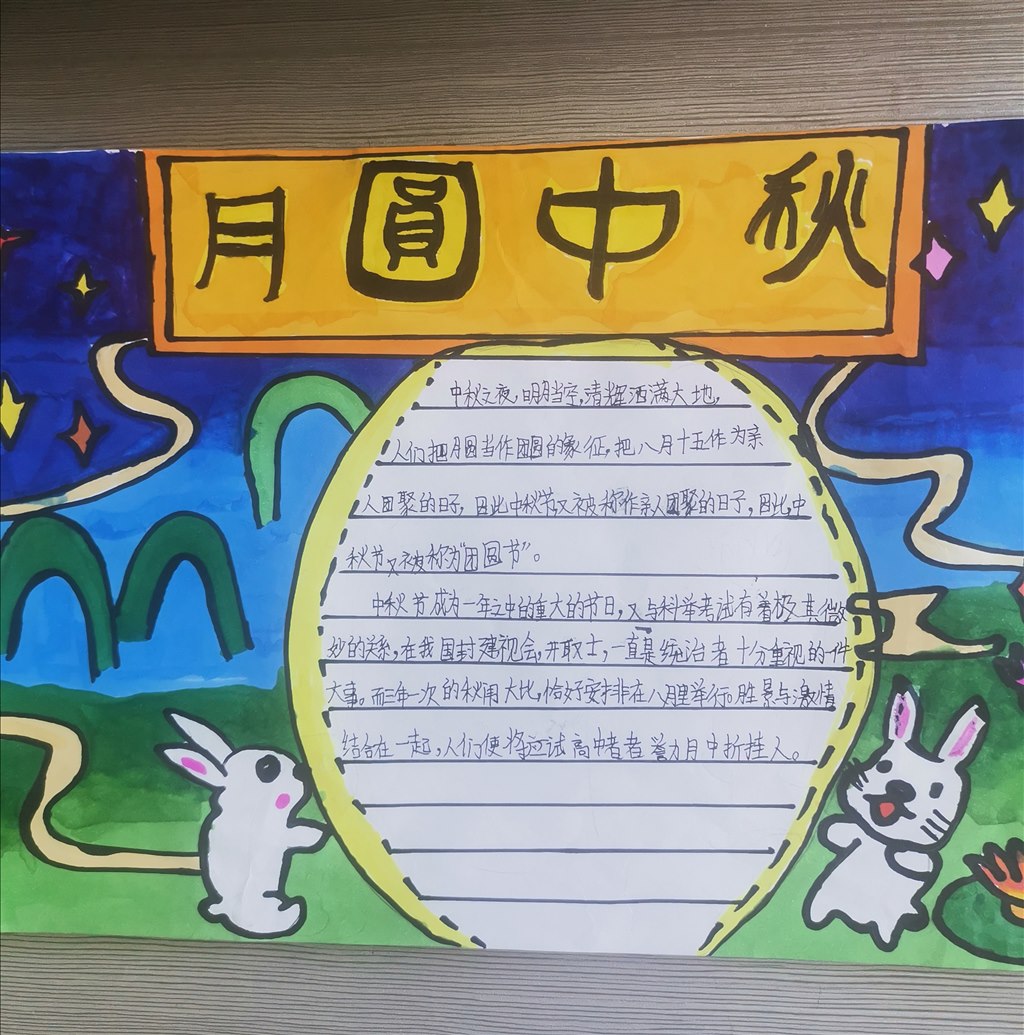 月圓中秋
中秋之夜，明月当空，清辉洒满大地，
人们把月圆当作团圆的象征，把八月十五作为亲
人团聚的日子，因此中秋节又被称作亲人团聚的日子，因此，中
秋节又被称为“团圆节”。
中秋节成为一年之中的重大的节日，又与科举考试有着极其微
妙的关系，在我国封建视会，开取士，一直是统治者十分重视的一件
大事。而三年一次的秋闱大比，恰好安排在八月里举行。胜景与激情
结合在一起，人们便将应试高中者者誉为月中折挂人。